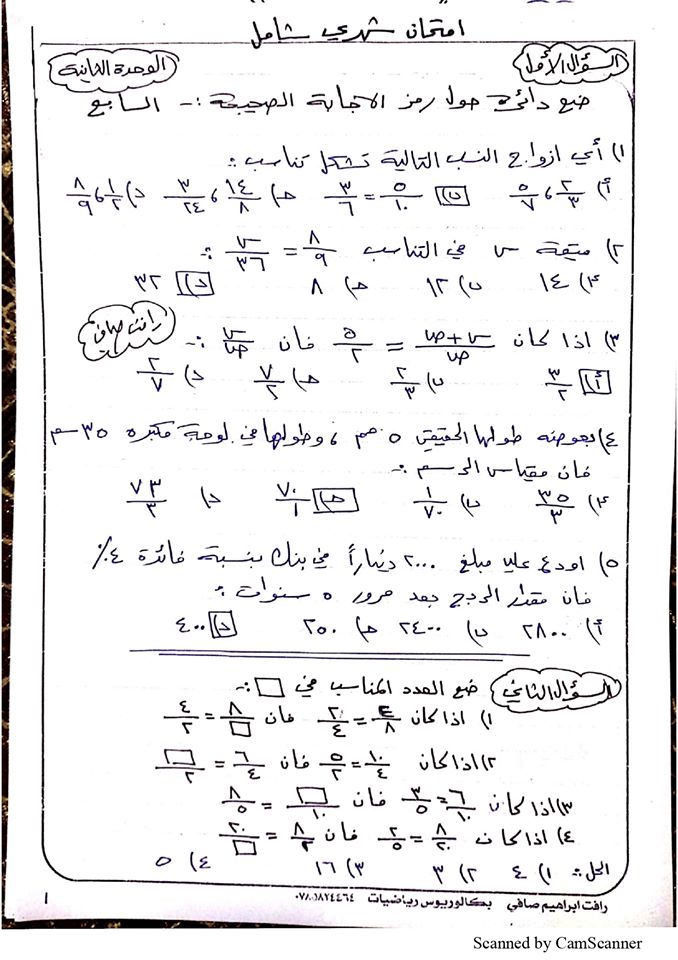 امتحان شهري شامل
السؤال الأول
الوحدة الثانية
ضع دائرة حول رمز الاجابة الصحيحة :- السابع
١) أي ازواج النسب التالية تشكل تناسب :
أ) ٢/٣ ، ٥/٧ ب) ٥/١٠ = ٣/٦ جـ) ١٤/٨ ، ٣/٢٤ د) ١/٢ ، ٨/٩
٢) قيمة س في التناسب ٨/٩ = س/٣٦ :-
أ) ١٤ ب) ١٢ جـ) ٨ د) ٣٢
٣) اذا كان س+ص/ص = ٥/٢ فان س/ص :-
رافت صافي
أ) ٣/٢ ب) ٢/٣ جـ) ٧/٢ د) ٢/٧
٤) بعوضه طولها الحقيقي ٥ مم ، وطولها في لوحة مكبره ٣٥ سم
فان مقياس الرسم :-
أ) ٣٥/٣ ب) ١/٧٠ جـ) ٧٠/١ د) ٧٣/٣
٥) اودع علي مبلغ ٢٠٠٠ ديناراً في بنك بنسبة فائدة ٤٪
فان مقدار الربح بعد مرور ٥ سنوات :
أ) ٢٨٠٠ ب) ٢٤٠٠ جـ) ٢٥٠ د) ٤٠٠
السؤال الثاني
ضع العدد المناسب في □ :-
١) اذا كان ٤/٨ = ٢/٤ فان ٨/□ = ٤/٢
٢) اذا كان ١٠/٤ = ٥/٢ فان ٦/٤ = □/٢
٣) اذا كان ٦/١٠ = ٣/٥ فان □/١٠ = ٨/٥
٤) اذا كان ٨/٢٠ = ٢/٥ فان ٨/٢ = ٢٠/□
الحل : ١) ٤ ٢) ٣ ٣) ١٦ ٤) ٥
رافت ابراهيم صافي بكالوريوس رياضيات ٠٧٨٠٥٨٧٤٤٦٤
١
Scanned by CamScanner